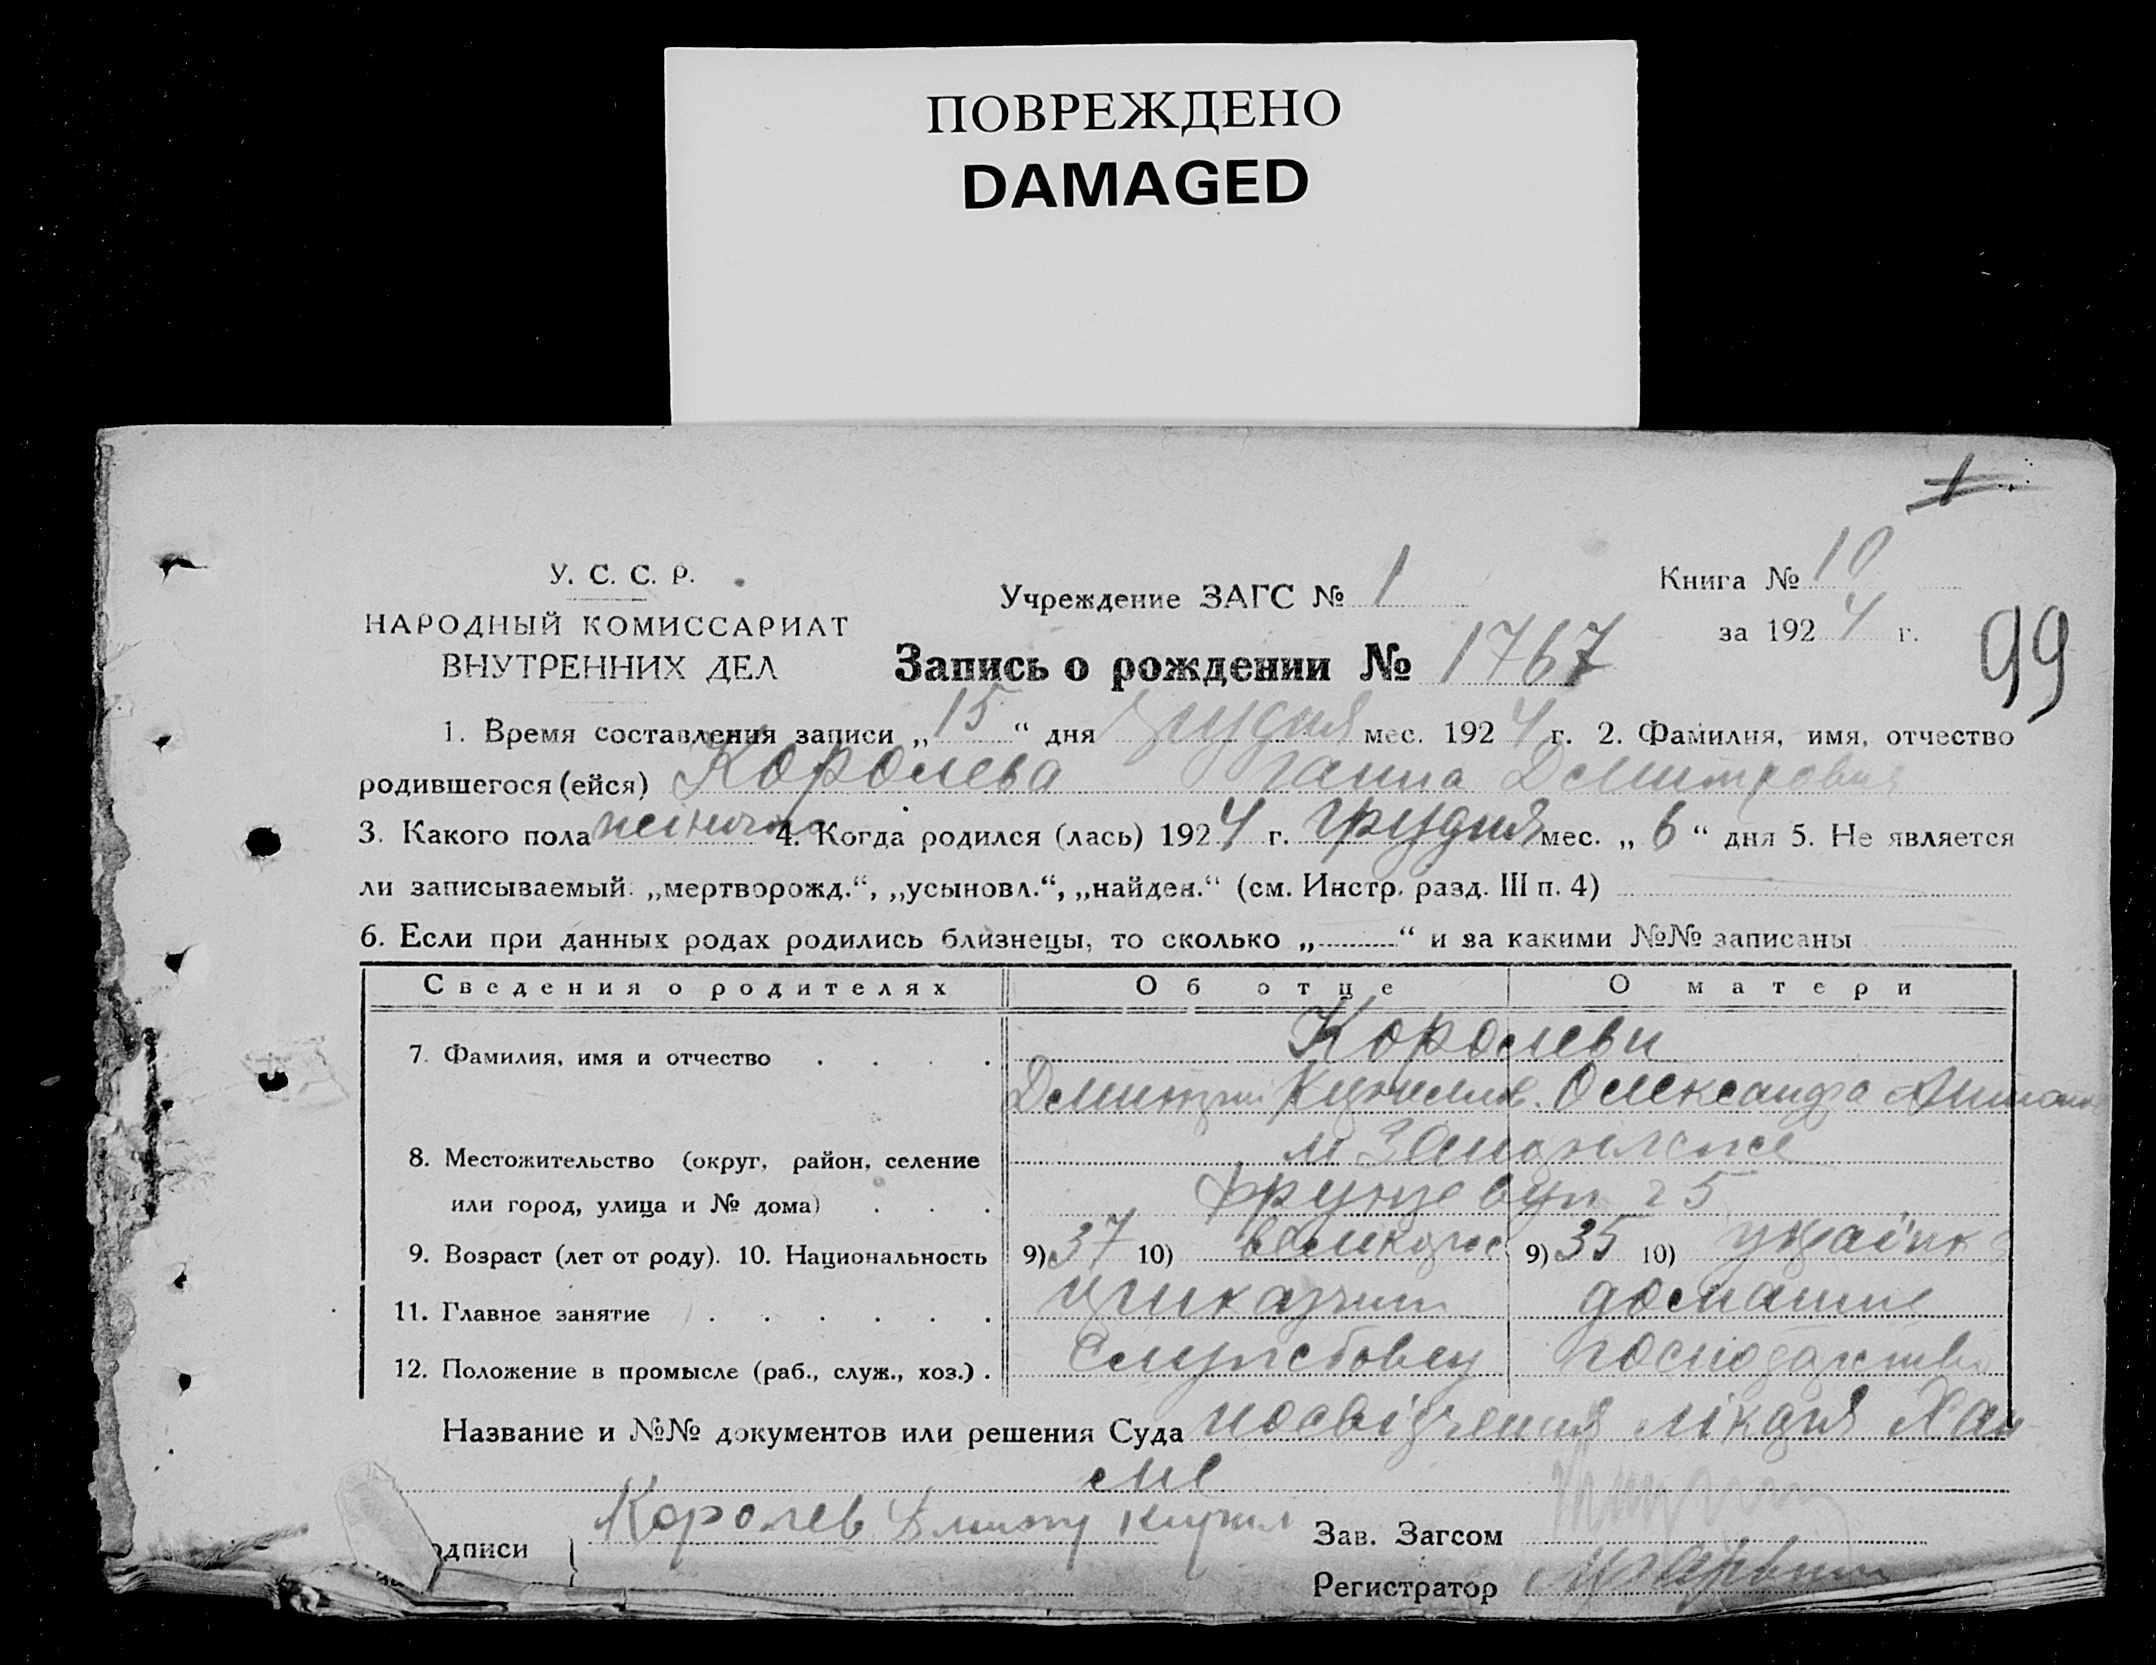 ПОВРЕЖДЕНО
DAMAGED
1
У. С. С. Р.
НАРОДНЫЙ КОМИССАРИАТ
ВНУТРЕННИХ ДЕЛ
Учреждение ЗАГС № 1
Книга № 10
за 1924 г.
99
Запись о рождении № 1767
1. Время составления записи „15“ дня грудня мес. 1924 г. 2. Фамилия, имя, отчество
родившегося (ейся) Королева Ганна Дмитровна
3. Какого пола жіноча 4. Когда родился (лась) 1924 г. грудня мес. „6“ дня 5. Не является
ли записываемый: „мертворожд.“, „усыновл.“, „найден.“ (см. Инстр. разд. III п. 4)
6. Если при данных родах родились близнецы, то сколько „ “ и за какими №№ записаны
Сведения о родителях Об отце О матери
7. Фамилия, имя и отчество Королеви
Олександра
8. Местожительство (округ, район, селение м Запоріжжє
или город, улица и № дома) Фрунзе вул 25
9. Возраст (лет от роду). 10. Национальность 9) 37 10) великорос 9) 35 10) україн
11. Главное занятие домашнє
12. Положение в промысле (раб., служ., хоз.) службовец господарство
Название и №№ документов или решения Суда посвідчення лікаря
Королев Дмитр Кирил
одписи
Зав. Загсом
Регистратор